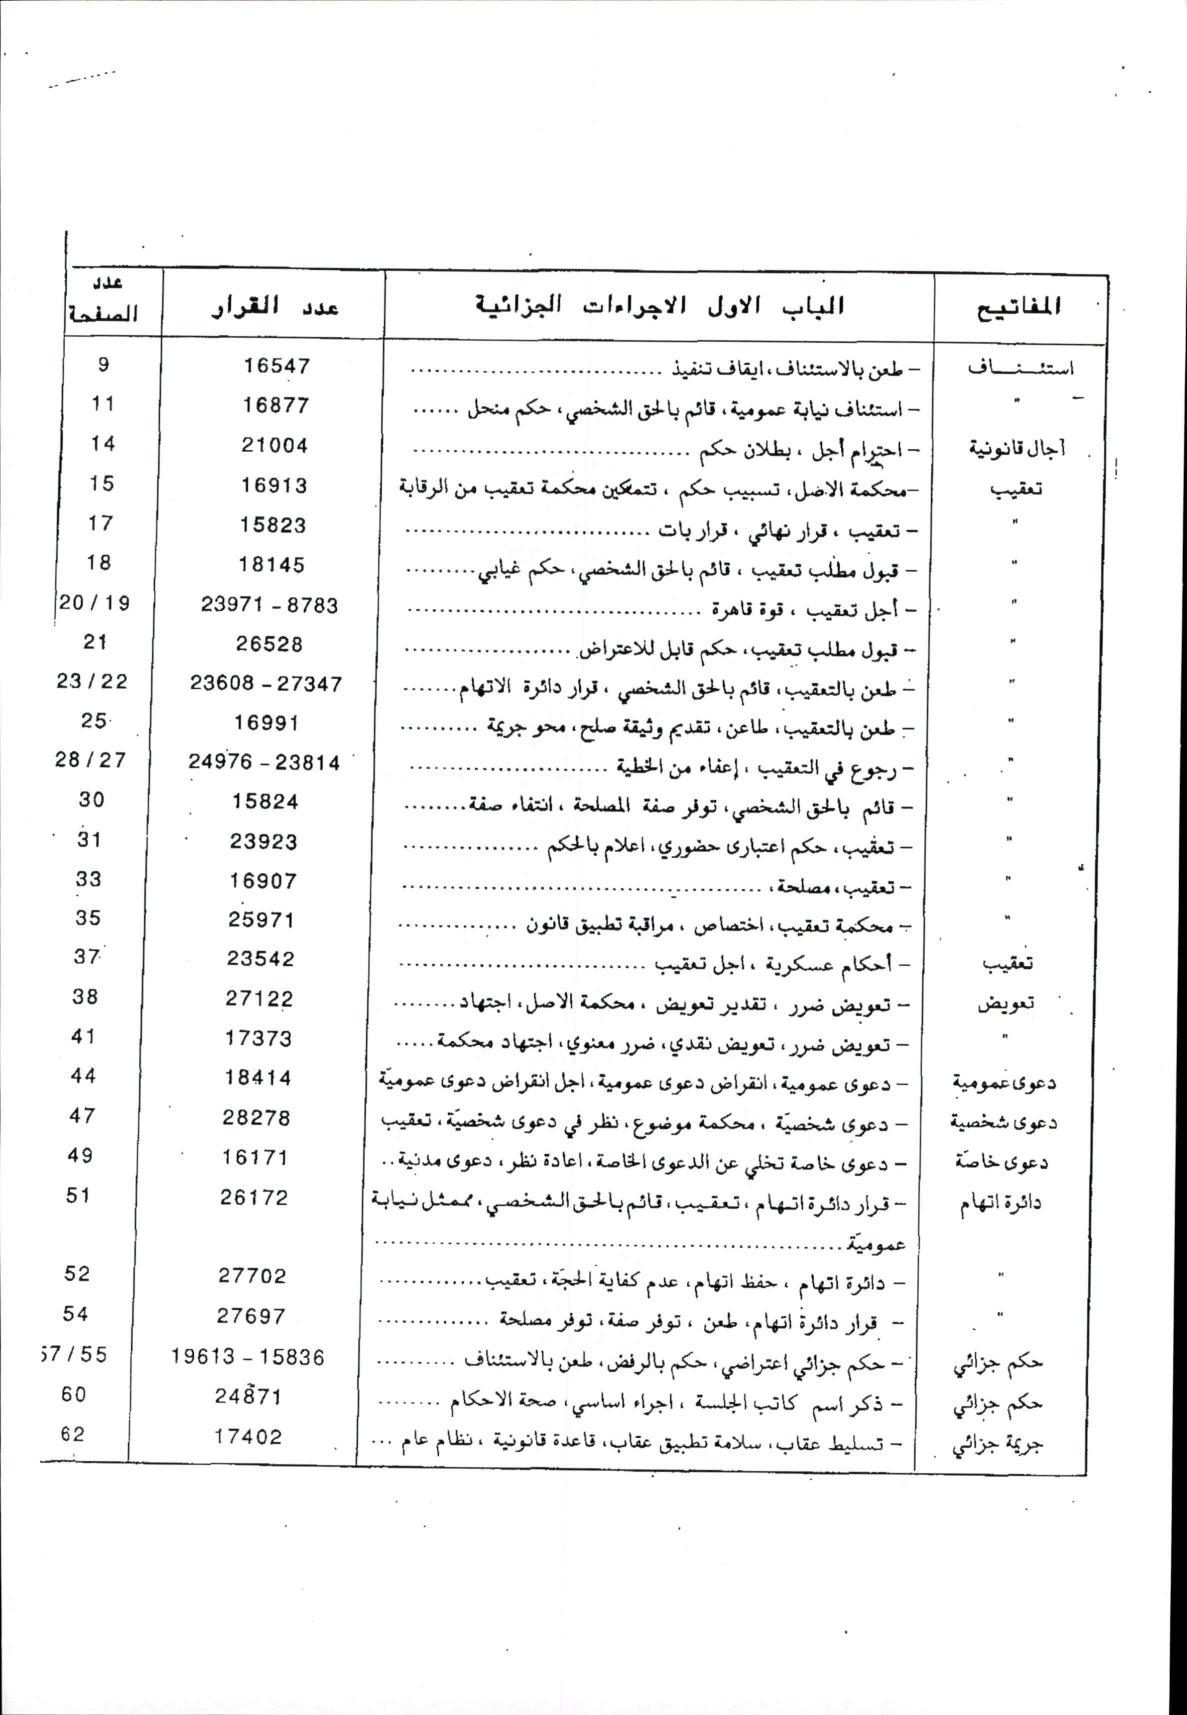 المفاتيح الباب الاول الاجراءات الجزائية عدد القرار عدد الصفحة
استئنـاف – طعن بالاستئناف، ايقاف تنفيذ .............................. 16547 9
– " – استئناف نيابة عمومية، قائم بالحق الشخصي، حكم منحل ...... 16877 11
آجال قانونية – احترام أجل ، بطلان حكم .................................. 21004 14
تعقيب –محكمة الاصل، تسبيب حكم ، تتمكين محكمة تعقيب من الرقابة 16913 15
" – تعقيب ، قرار نهائي ، قرار بات .............................. 15823 17
" – قبول مطلب تعقيب ، قائم بالحق الشخصي، حكم غيابي......... 18145 18
" – أجل تعقيب ، قوة قاهرة .................................... 23971 – 8783 20 / 19
" – قبول مطلب تعقيب، حكم قابل للاعتراض ..................... 26528 21
" – طعن بالتعقيب، قائم بالحق الشخصي ، قرار دائرة الاتهام....... 23608 – 27347 23 / 22
" – طعن بالتعقيب، طاعن، تقديم وثيقة صلح، محو جريمة .......... 16991 25
" – رجوع في التعقيب ، إعفاء من الخطية ........................ 24976 – 23814 28 / 27
" – قائم بالحق الشخصي، توفر صفة المصلحة ، انتفاء صفة........ 15824 30
" – تعقيب، حكم اعتبارى حضوري، اعلام بالحكم ................. 23923 31
" – تعقيب، مصلحة، ............................................ 16907 33
" – محكمة تعقيب، اختصاص ، مراقبة تطبيق قانون ............... 25971 35
تعقيب – أحكام عسكرية ، اجل تعقيب .............................. 23542 37
تعويض – تعويض ضرر ، تقدير تعويض ، محكمة الاصل، اجتهاد........ 27122 38
" – تعويض ضرر، تعويض نقدي، ضرر معنوي، اجتهاد محكمة..... 17373 41
دعوى عمومية – دعوى عمومية، انقراض دعوى عمومية، اجل انقراض دعوى عموميّة 18414 44
دعوى شخصية – دعوى شخصيّة ، محكمة موضوع، نظر في دعوى شخصيّة، تعقيب 28278 47
دعوى خاصّة – دعوى خاصة تخلي عن الدعوى الخاصة، اعادة نظر، دعوى مدنية.. 16171 49
دائرة اتهام – قرار دائرة اتهام ، تعقيب، قائم بالحق الشخصي، ممثل نيابة 26172 51
عموميّة.........................................................
" – دائرة اتهام ، حفظ اتهام، عدم كفاية الحجّة، تعقيب............. 27702 52
" – قرار دائرة اتهام، طعن ، توفر صفة، توفر مصلحة .............. 27697 54
حكم جزائي – حكم جزائي اعتراضي، حكم بالرفض، طعن بالاستئناف .......... 19613 – 15836 57 / 55
حكم جزائي – ذكر اسم كاتب الجلسة ، اجراء اساسي، صحة الاحكام ........ 24871 60
جريمة جزائي – تسليط عقاب، سلامة تطبيق عقاب، قاعدة قانونية ، نظام عام ... 17402 62